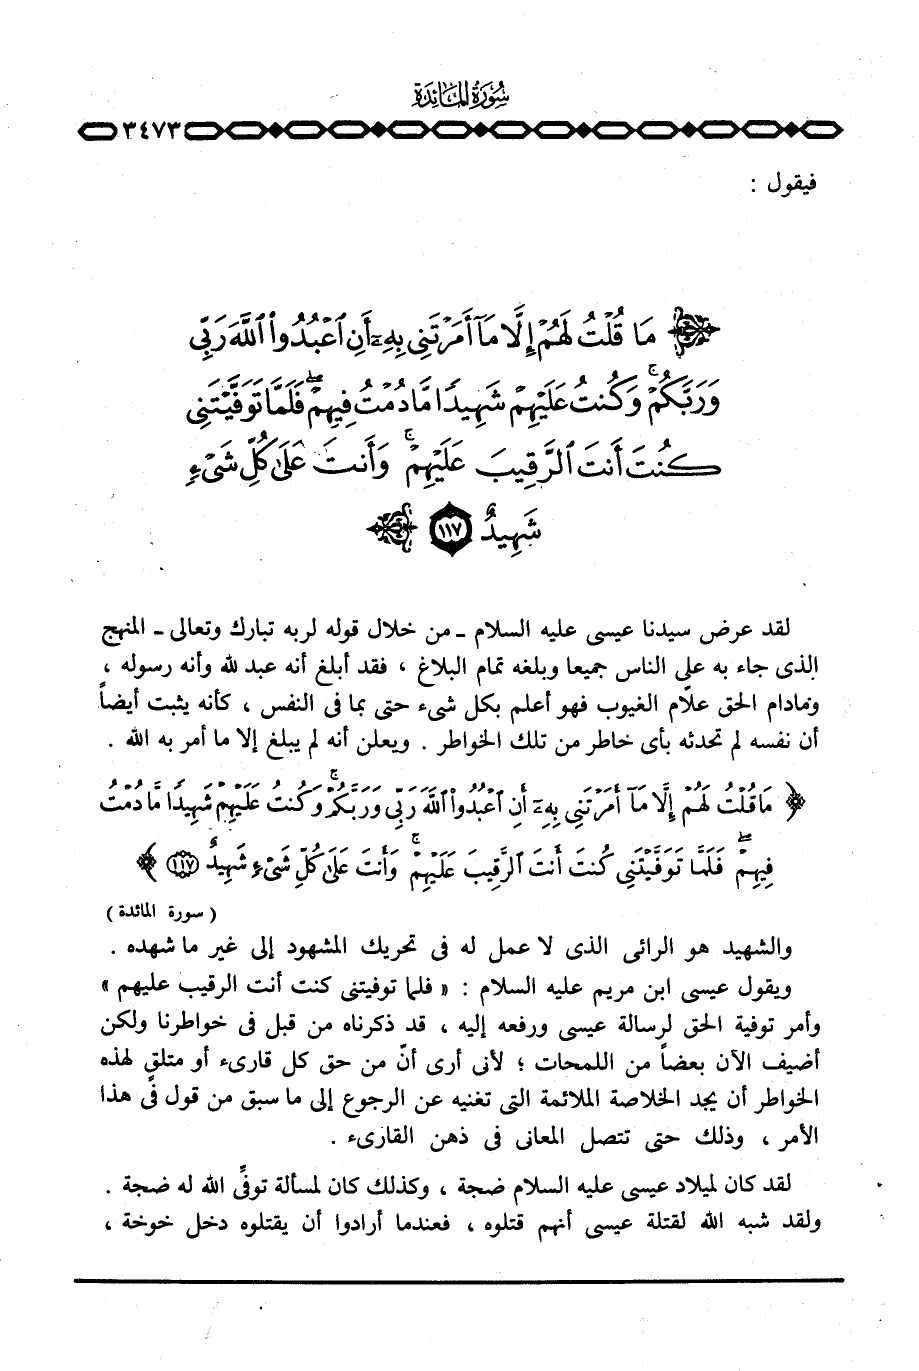 سُورَةُ المَائِدَةِ
٣٤٧٣
فيقول :
مَا قُلْتُ لَهُمْ إِلَّا مَآ أَمَرْتَنِى بِهِۦٓ أَنِ ٱعْبُدُوا۟ ٱللَّهَ رَبِّى
وَرَبَّكُمْ ۚ وَكُنتُ عَلَيْهِمْ شَهِيدًا مَّا دُمْتُ فِيهِمْ ۖ فَلَمَّا تَوَفَّيْتَنِى
كُنتَ أَنتَ ٱلرَّقِيبَ عَلَيْهِمْ ۚ وَأَنتَ عَلَىٰ كُلِّ شَىْءٍ
شَهِيدٌ ١١٧
لقد عرض سيدنا عيسى عليه السلام ـ من خلال قوله لربه تبارك وتعالى ـ المنهج
الذى جاء به على الناس جميعا وبلغه تمام البلاغ ، فقد أبلغ أنه عبد لله وأنه رسوله ،
ومادام الحق علّام الغيوب فهو أعلم بكل شىء حتى بما فى النفس ، كأنه يثبت أيضاً
أن نفسه لم تحدثه بأى خاطر من تلك الخواطر . ويعلن أنه لم يبلغ إلا ما أمر به الله .
﴿ مَا قُلْتُ لَهُمْ إِلَّا مَآ أَمَرْتَنِى بِهِۦٓ أَنِ ٱعْبُدُوا۟ ٱللَّهَ رَبِّى وَرَبَّكُمْ ۚ وَكُنتُ عَلَيْهِمْ شَهِيدًا مَّا دُمْتُ
فِيهِمْ ۖ فَلَمَّا تَوَفَّيْتَنِى كُنتَ أَنتَ ٱلرَّقِيبَ عَلَيْهِمْ ۚ وَأَنتَ عَلَىٰ كُلِّ شَىْءٍ شَهِيدٌ ١١٧ ﴾
( سورة المائدة )
والشهيد هو الرائى الذى لا عمل له فى تحريك المشهود إلى غير ما شهده .
ويقول عيسى ابن مريم عليه السلام : « فلما توفيتنى كنت أنت الرقيب عليهم »
وأمر توفية الحق لرسالة عيسى ورفعه إليه ، قد ذكرناه من قبل فى خواطرنا ولكن
أضيف الآن بعضاً من اللمحات ؛ لأنى أرى أنّ من حق كل قارىء أو متلقٍ لهذه
الخواطر أن يجد الخلاصة الملائمة التى تغنيه عن الرجوع إلى ما سبق من قول فى هذا
الأمر ، وذلك حتى تتصل المعانى فى ذهن القارىء .
لقد كان لميلاد عيسى عليه السلام ضجة ، وكذلك كان لمسألة توفّى الله له ضجة .
ولقد شبه الله لقتلة عيسى أنهم قتلوه ، فعندما أرادوا أن يقتلوه دخل خوخة ،